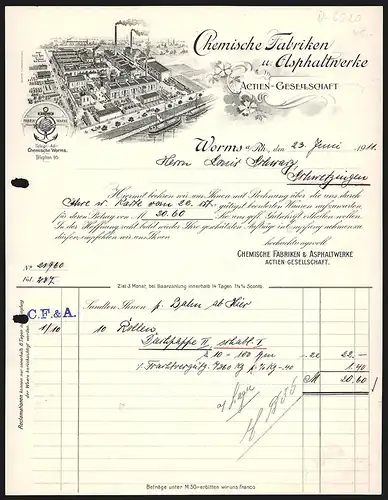 Chemische Fabriken
u. Asphaltwerke
Actien-Gesellschaft
Telegr.-Adr.
Chemische Worms.
Telephon 95.
Worms a/Rh., den 23. Juni 1911.
Herrn Louis Schwarz
Schwetzingen
Hiermit beehren wir uns Ihnen mit Rechnung über die uns durch
Ihre w. Karte vom 20. ist. gütigst beorderten Waaren aufzuwarten,
für deren Betrag von M 20.60 Sie uns gefl. Gutschrift erteilen wollen.
In der Hoffnung recht bald wieder Ihre geschätzten Aufträge in Empfang nehmen zu
dürfen, empfehlen wir uns Ihnen
hochachtungsvoll
Chemische Fabriken & Asphaltwerke
Actien-Gesellschaft.
No. 20960
Fol. 787
Ziel 3 Monat, bei Baarzahlung innerhalb 14 Tagen 1½% Sconto.
C.F.&A.
Sandten Ihnen p. Bahn ab Hier
1/10 10 Rollen
Dachpappe II
à 10 = 100 qm -.22 22.-
1.40
M 20.60
Reclamationen können nur innerhalb 8 Tagen nach Empfang der Ware berücksichtigt werden.
Beträge unter M. 50 erbitten wir uns franco